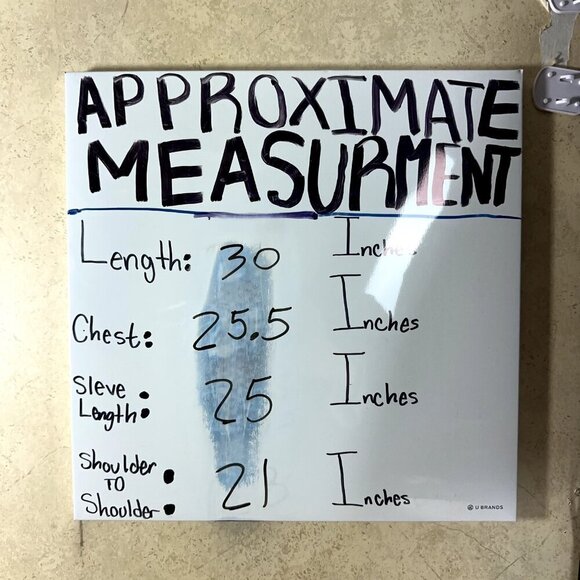 APPROXIMATE
MEASURMENT
Length: 30 Inches
Chest: 25.5 Inches
Sleve
Length: 25 Inches
Shoulder
TO
Shoulder: 21 Inches
U BRANDS